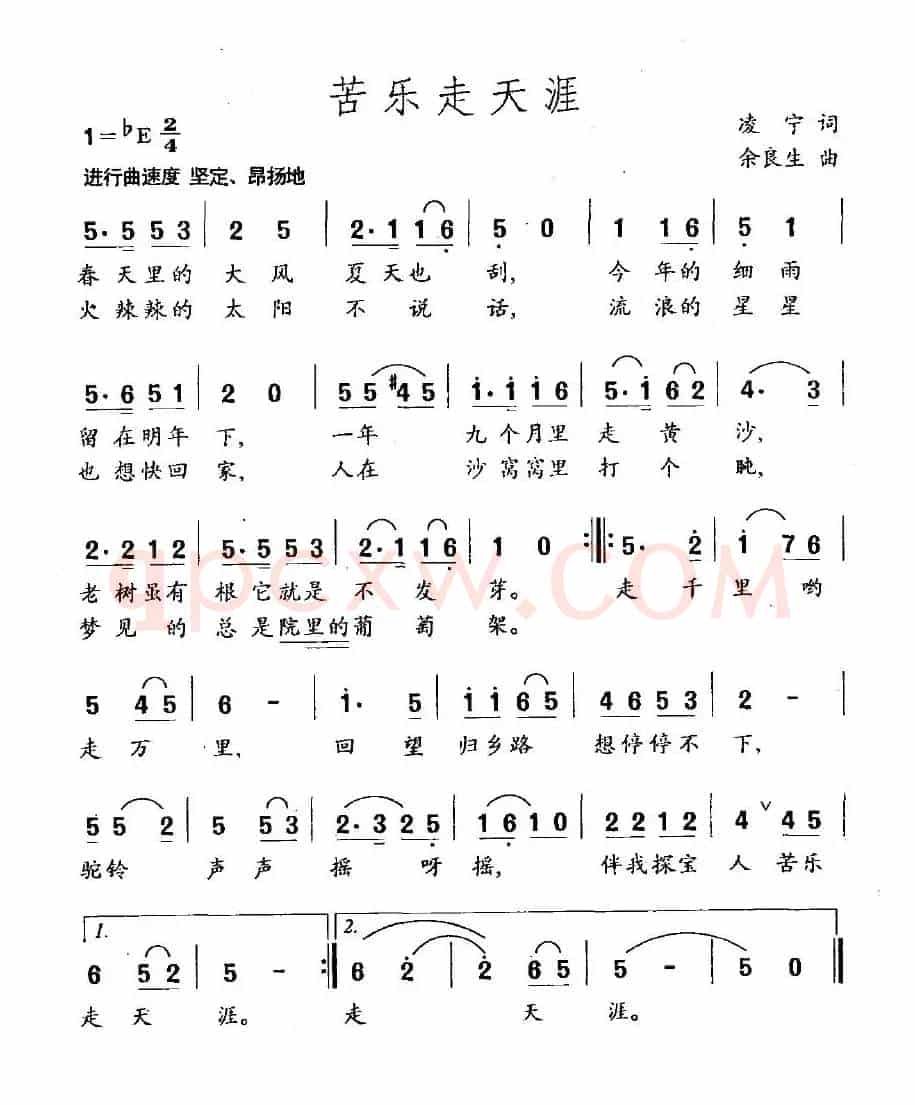 苦乐走天涯
1=♭E 2/4
凌 宁 词
余良生 曲
进行曲速度 坚定、昂扬地
5·5 5 3 | 2 5 | 2·1 1 6 | 5 0 | 1 1 6 | 5 1 |
春 天里的 大 风 夏 天也 刮, 今 年的 细 雨
火 辣辣的 太 阳 不 说 话, 流 浪的 星 星
5·6 5 1 | 2 0 | 5 5 #4 5 | i·i i 6 | 5·i 6 2 | 4· 3 |
留 在明年 下, 一年 九 个月里 走 黄 沙,
也 想快回 家, 人在 沙 窝窝里 打 个 盹,
2·2 1 2 | 5·5 5 3 | 2·1 1 6 | 1 0 :||: 5· 2 | i 7 6 |
老 树虽有 根 它就是 不 发 芽。 走 千 里 哟
梦 见 的 总 是院里的葡 萄 架。
5 4 5 | 6 - | i· 5 | i i 6 5 | 4 6 5 3 | 2 - |
走 万 里, 回 望 归乡路 想停停不 下,
5 5 2 | 5 5 3 | 2·3 2 5 | 1 6 1 0 | 2 2 1 2 | 4 ∨ 4 5 |
驼铃 声 声 摇 呀 摇, 伴我探宝 人 苦乐
1. 2.
6 5 2 | 5 - :|| 6 2 | 2 6 5 | 5 - | 5 0 ||
走 天 涯。 走 天 涯。
qpcxw.COM